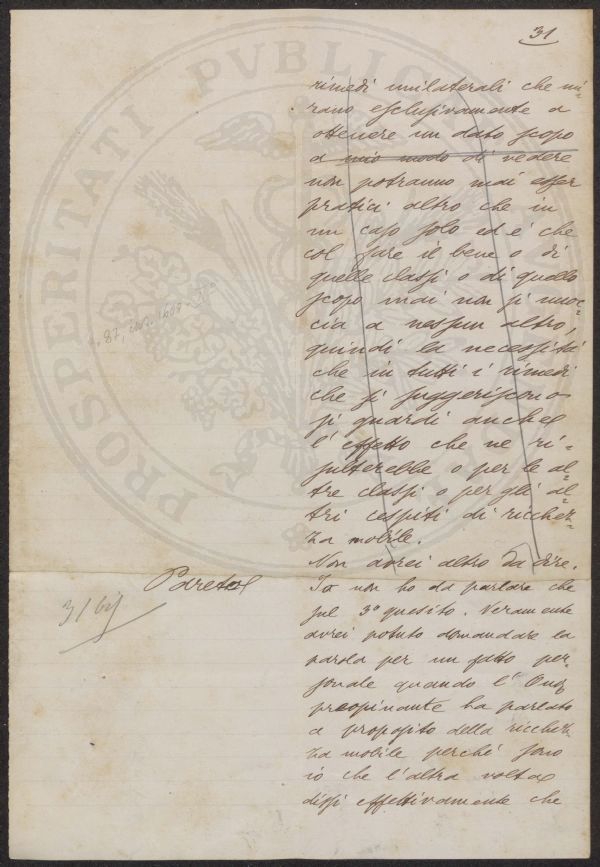 31
PROSPERITATI PVBLICAE
rimedi unilaterali che mi=
rano esclusivamente a
ottenere un dato scopo
a mio modo di vedere
non potranno mai esser
pratici altro che in
un caso solo ed è che
col fare il bene o di
quelle classi o di quello
scopo mai non si nuo=
cia a nessun altro,
quindi la necessità
che in tutti i rimedi
che si suggeriscono
si guardi anche
l'effetto che ne ri=
sulterebbe o per le al=
tre classi o per gli al=
tri cespiti di ricchez=
za mobile.
Non avrei altro da dire.
Pareto
Io non ho da parlare che
sul 3º quesito. Veramente
avrei potuto domandare la
parola per un fatto per=
sonale quando l'Onor
preopinante ha parlato
a proposito della ricchez=
za mobile perché sono
io che l'altra volta
dissi effettivamente che